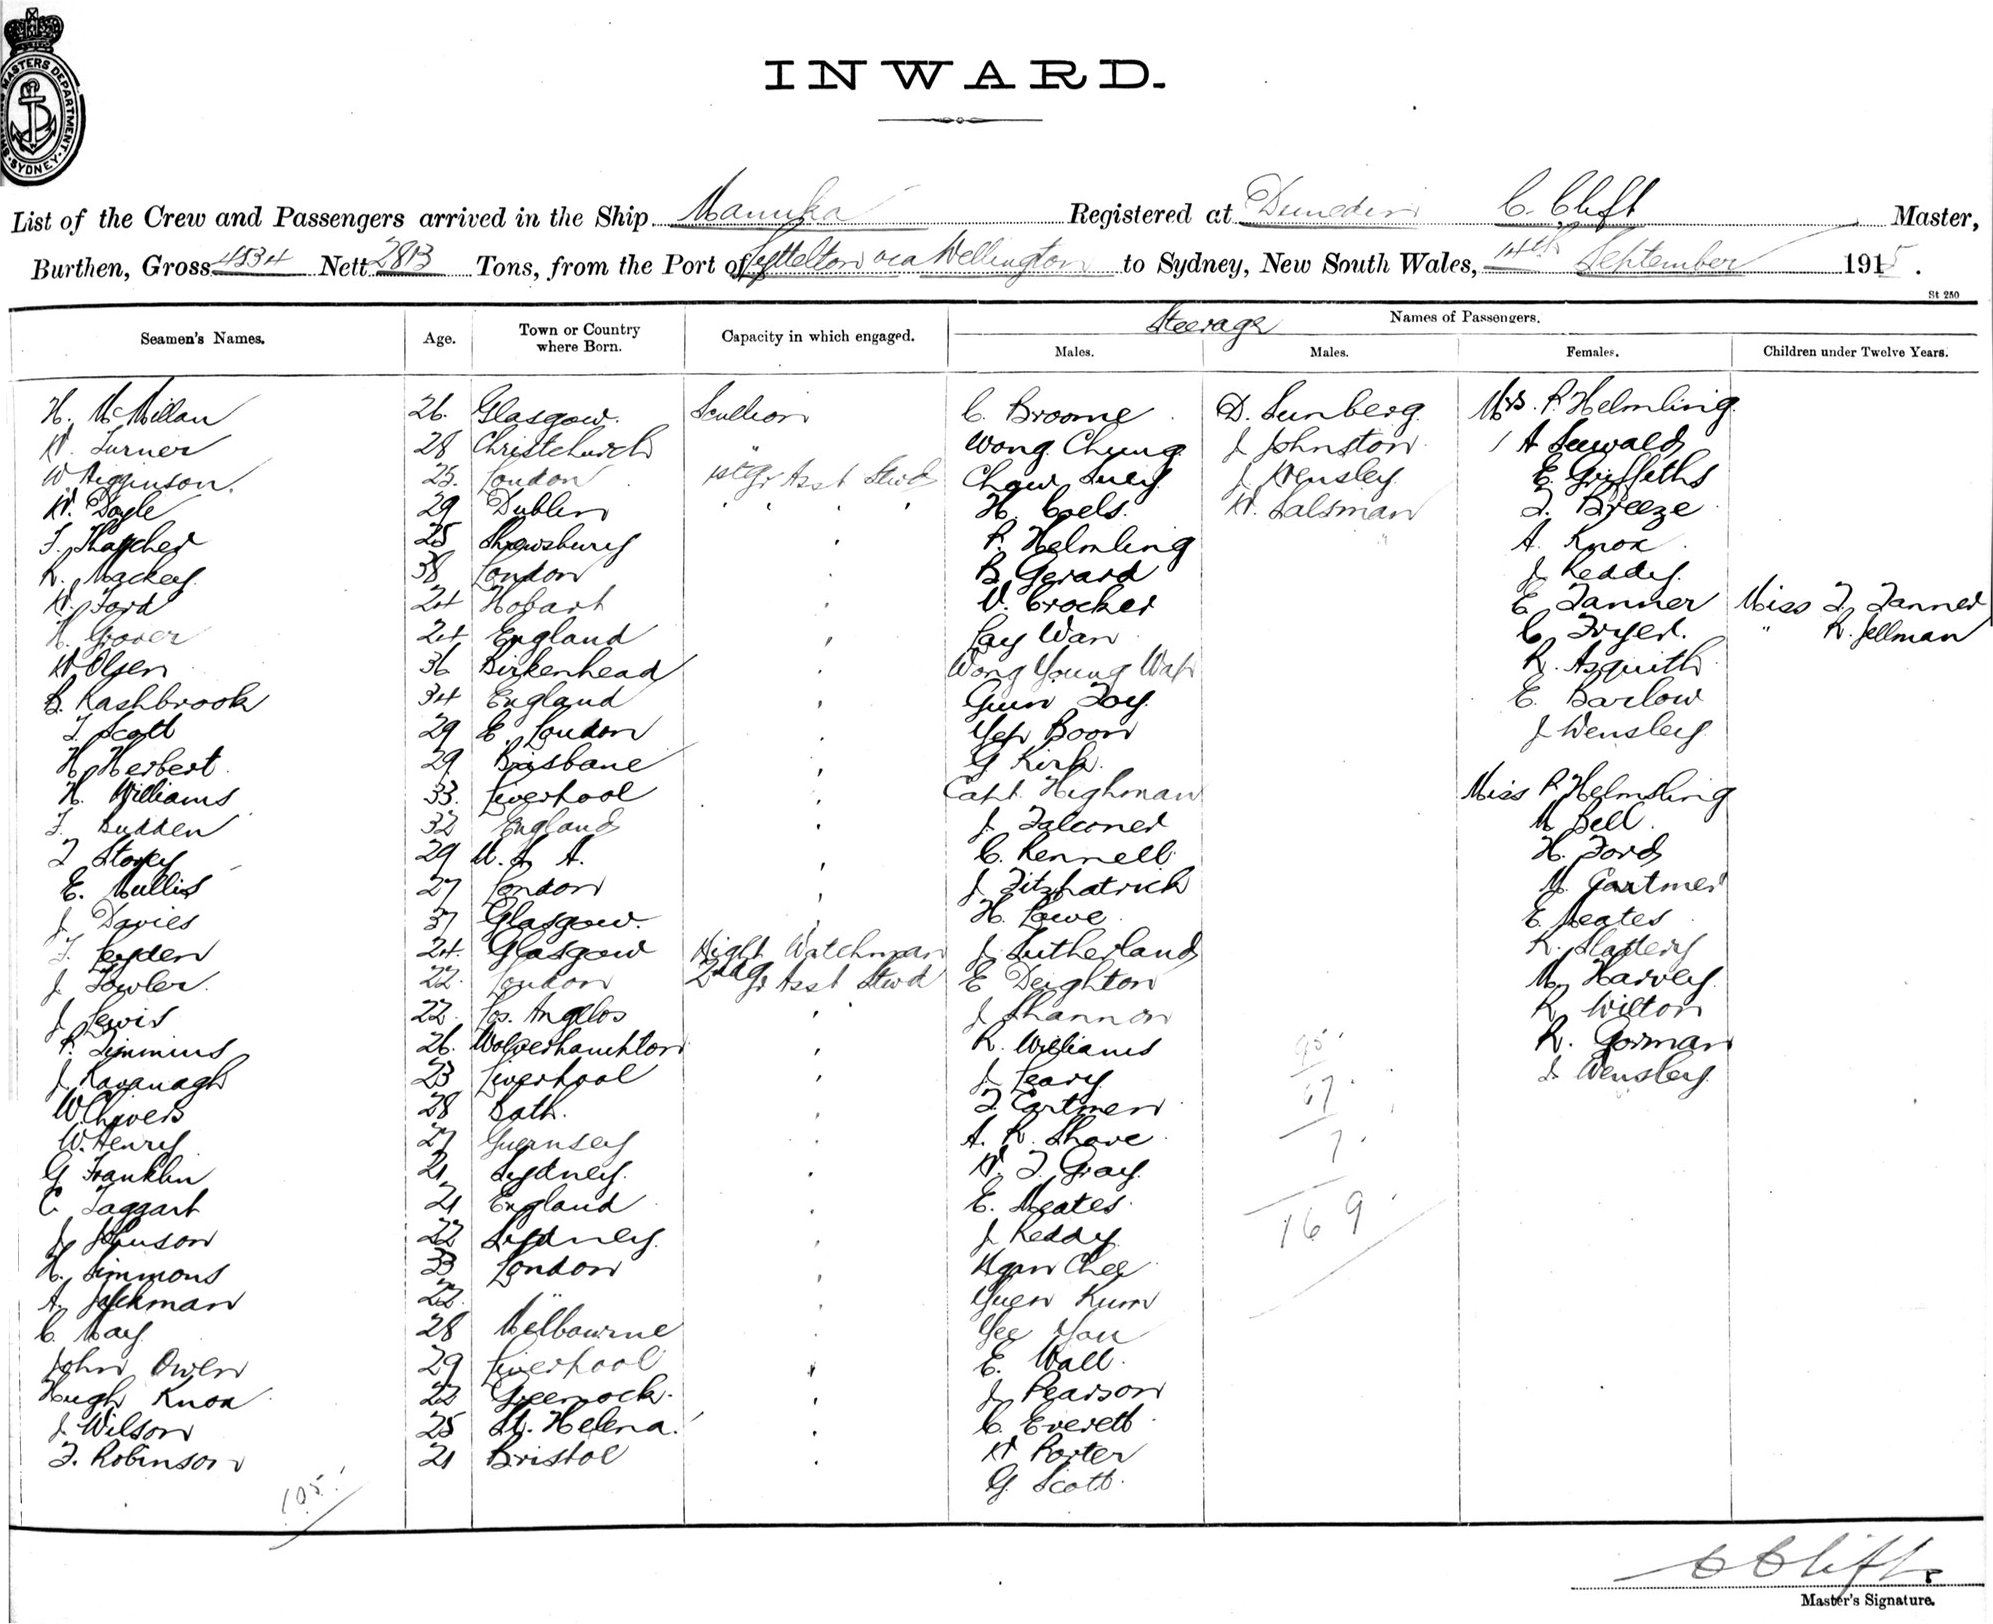 INWARD.
MASTERS DEPARTMENT. SYDNEY.
List of the Crew and Passengers arrived in the Ship Manuka Registered at Dunedin C. Clift Master,
Burthen, Gross 4534 Nett 2813 Tons, from the Port of Lyttelton via Wellington to Sydney, New South Wales, 14th September 1915.
St 250
Seamen's Names. Age. Town or Country where Born. Capacity in which engaged. Steerage Names of Passengers.
Males. Males. Females. Children under Twelve Years.
H. McMillan 26. Glasgow. Scullion C. Broome D. Sunberg. Mrs. P. Helmling
W. Turner 28 Christchurch " Wong Chung J Johnston A Seewald
W Higginson. 25. London 1st Gr Asst Stwd Chow Suey J Wensley E. Griffeths
W. Doyle 29 Dublin " " " " H. Coels. W. Salsman F. Breeze
F. Thatcher 25 Shrewsbury " P. Helmling A. Knox
R. Mackey. 38 London " B. Gerard J Keddy.
W. Ford 24 Hobart " V. Crocker E. Tanner Miss F. Tanner
Grover 24. England " Lay Wan C. Fryer. " R. Jellman
W Olsen 36 Birkenhead Wong Young Wah R. Asquith
B. Rashbrook 34 England " Guin Foy. E. Barlow
T. Scott 29 E. London " Yep Boon J Wensley
H. Herbert. 29 Brisbane " G Kirk.
H. Williams 33. Liverpool " Capt. Highman Miss P Helmsling
F. Budden 32 England " J. Falconer M Bell.
T Storey 29 U. S. A. " C. Kennell H. Ford
E. Mullis 27 London " J Fitzpatrick M. Cartmer
J Davies 37 Glasgow. " H. Lowe E. Meates
T. Leyden 24. Glasgow Night Watchman J. Sutherland K. Slattery
J Fowler. 22. London 2nd Gr Asst Stwd E Deighton M. Harvey.
J Lewis 22. Los. Angelos " J Shannon R. Wilton
P. Timmins 26. Wolverhamhton " R. Williams R. Gorman
J Kavanagh 23 Liverpool " J. Leary J. Wensley
W. Chivers 28 Bath. " T. Cartmer
W. Henry 27 Guernsey " A. R. Shave
G Franklin 21 Sydney. " W. F. Gray.
C Taggart 21 England " E. Meates.
J Johnson 22 Sydney. " J Keddy
H. Simmons 33 London " Ngan Chee
A. Jackman 22. " " Yuen Kum
C. May 28 Melbourne " Yee You
John Owen 29 Liverpool " E. Wall.
Hugh Knox 22 Greenock. " J Pearson
J. Wilson 25 St. Helena. " C. Everett
F. Robinson 21 Bristol " W Porter
G. Scott.
95
67
7
169
105
C Clift
Master's Signature.